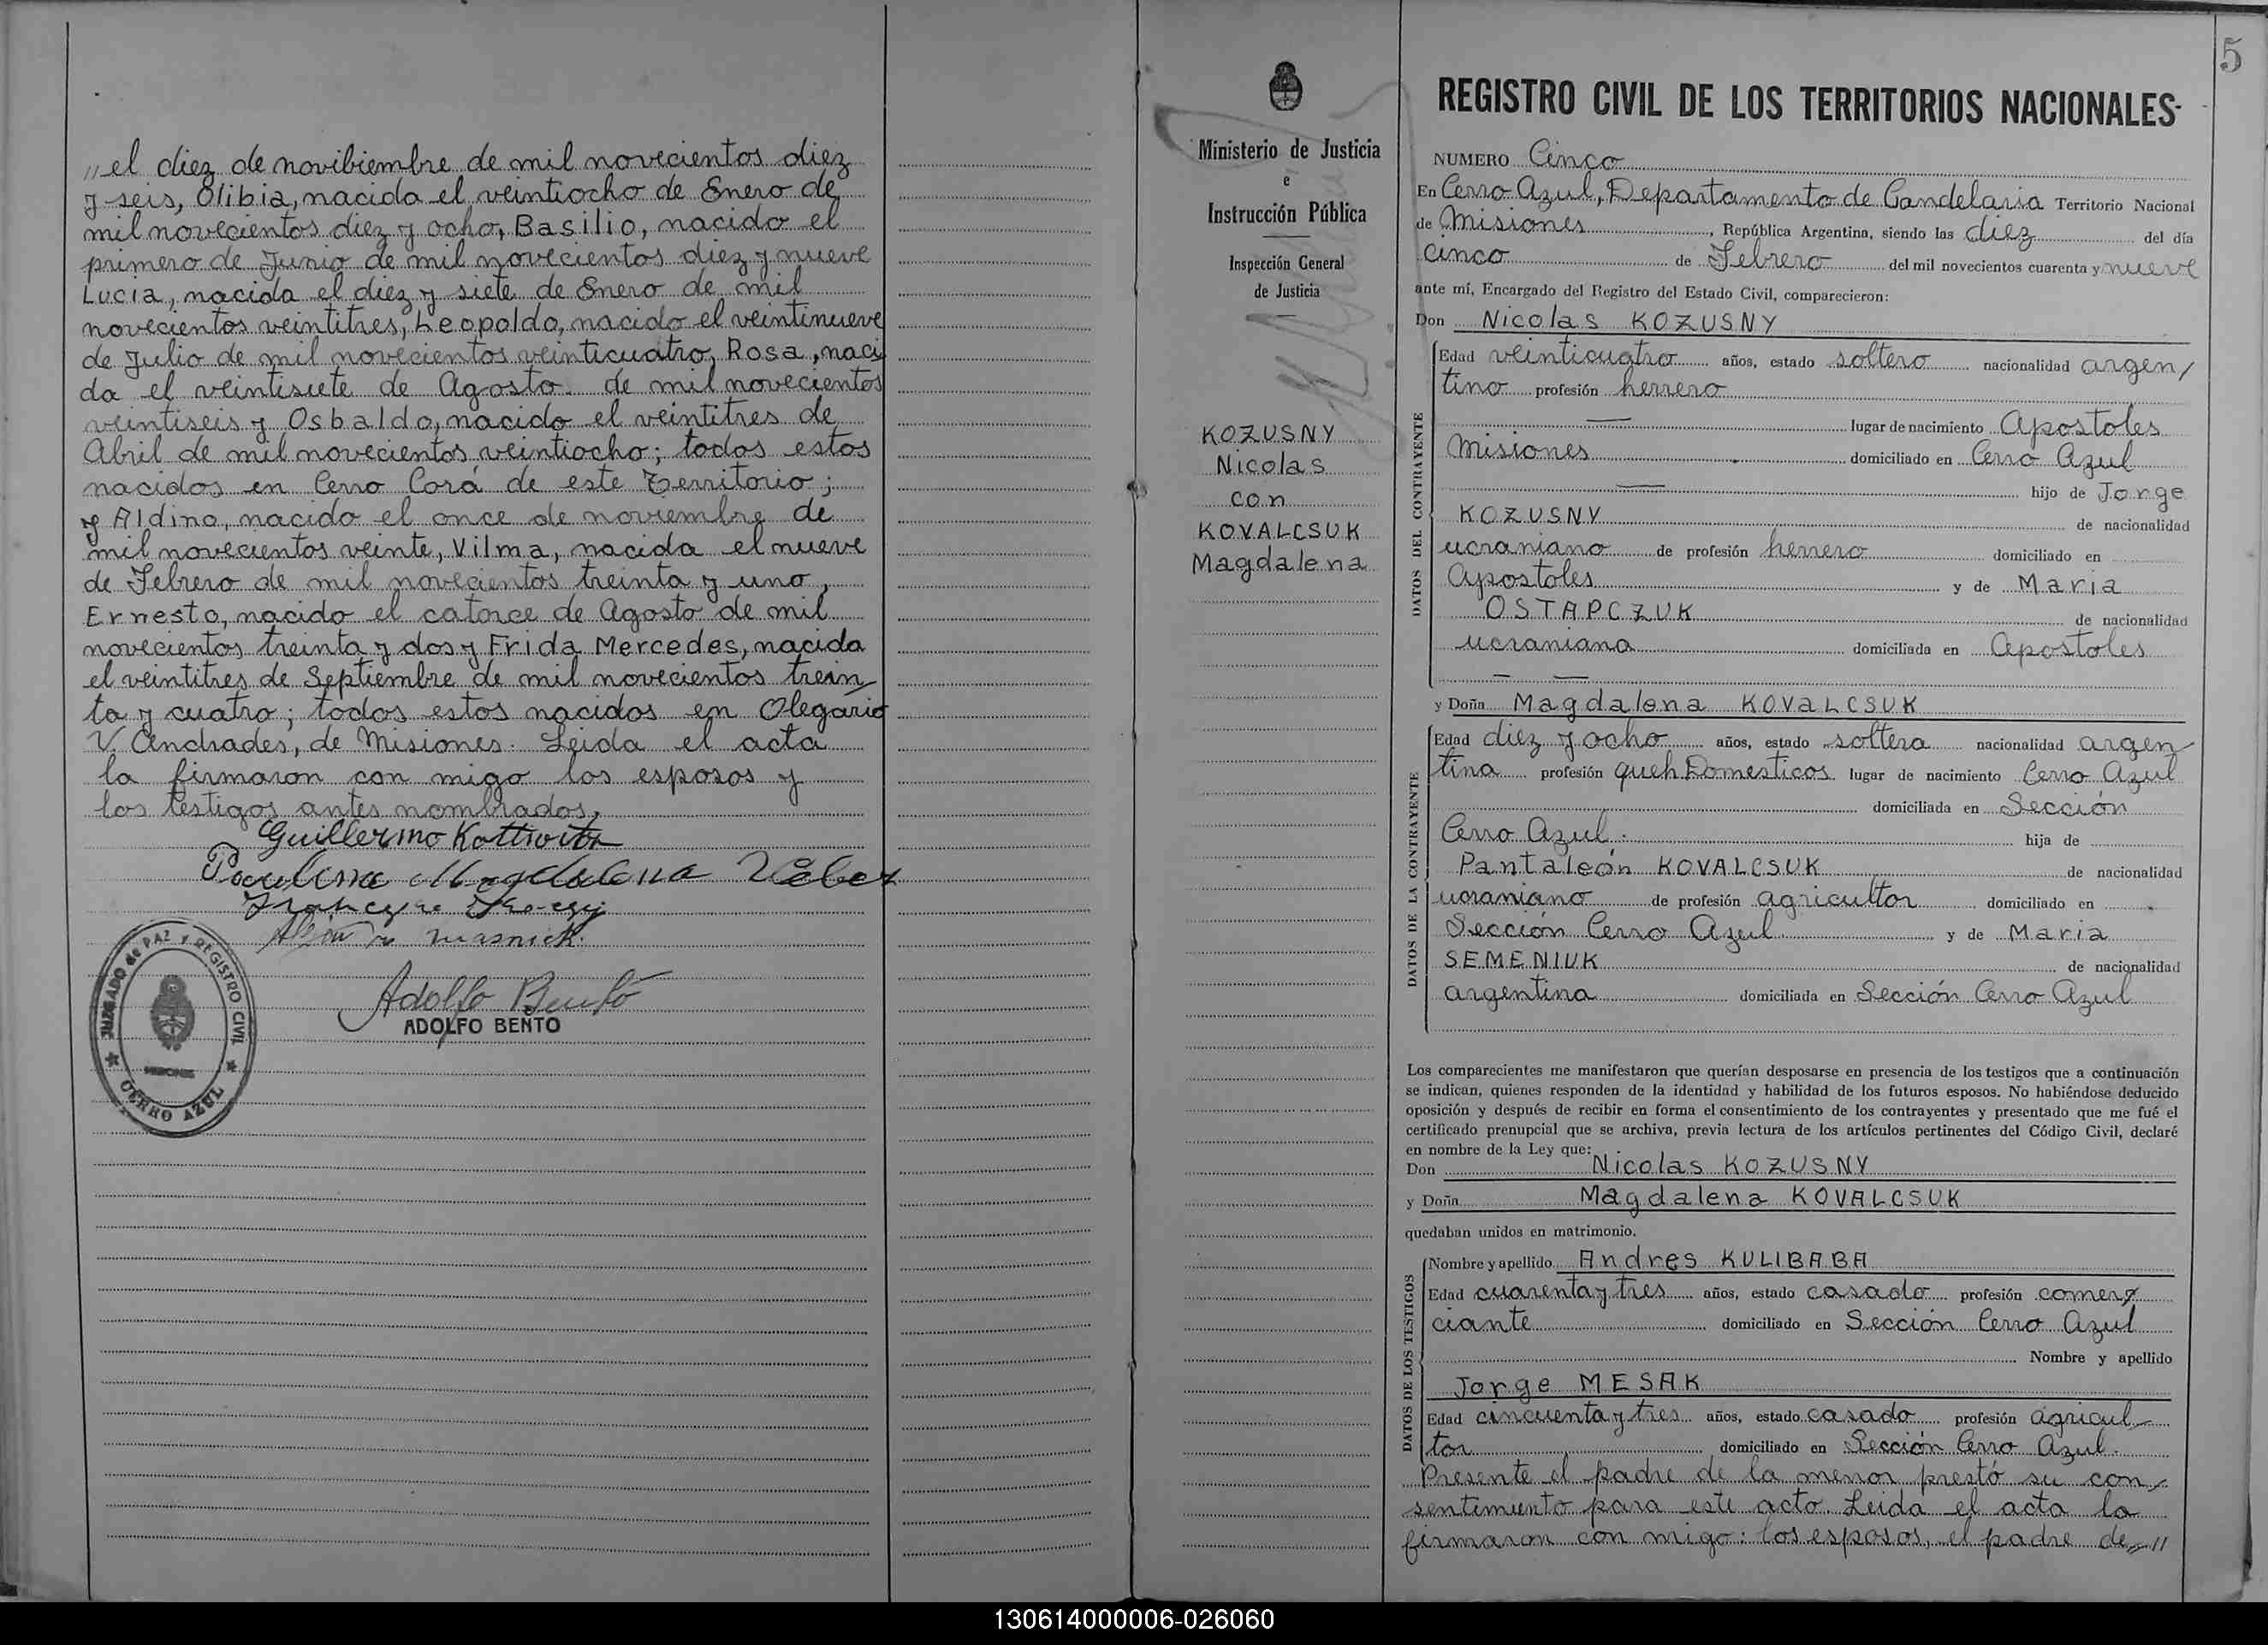 „el diez de novibiembre de mil novecientos diez
y seis, Olibia, nacida el veintiocho de Enero de
mil novecientos diez y ocho, Basilio, nacido el
primero de Junio de mil novecientos diez y nueve
Lucia, nacida el diez y siete de Enero de mil
novecientos veintitres, Leopoldo, nacido el veintinueve
de Julio de mil novecientos veinticuatro, Rosa, naci
da el veintisiete de Agosto de mil novecientos
veintiseis y Osbaldo, nacido el veintitres de
Abril de mil novecientos veintiocho; todos estos
nacidos en Cerro Corá de este Territorio;
y Aldino, nacido el once de noviembre de
mil novecientos veinte, Vilma, nacida el nueve
de Febrero de mil novecientos treinta y uno,
Ernesto, nacido el catorce de Agosto de mil
novecientos treinta y dos y Frida Mercedes, nacida
el veintitres de Septiembre de mil novecientos trein
ta y cuatro; todos estos nacidos en Olegario
V. Andrades, de Misiones. Leida el acta
la firmaron con migo los esposos y
los testigos antes nombrados.
Guillermo
Paulina Magdalena
ADOLFO BENTO
Adolfo Bentó
JUZGADO de PAZ y REGISTRO CIVIL
MISIONES
CERRO AZUL
Ministerio de Justicia
e
Instrucción Pública
Inspección General
de Justicia
KOZUSNY
Nicolas
con
KOVALCSUK
Magdalena
5
REGISTRO CIVIL DE LOS TERRITORIOS NACIONALES
NUMERO Cinco
En Cerro Azul, Departamento de Candelaria Territorio Nacional
de Misiones, República Argentina, siendo las diez del día
cinco de Febrero del mil novecientos cuarenta y nueve
ante mí, Encargado del Registro del Estado Civil, comparecieron:
Don Nicolas KOZUSNY
DATOS DEL CONTRAYENTE
Edad veinticuatro años, estado soltero nacionalidad argen/
tino profesión herrero
— lugar de nacimiento Apostoles
Misiones domiciliado en Cerro Azul
— hijo de Jorge
KOZUSNY de nacionalidad
ucraniano de profesión herrero domiciliado en
Apostoles y de Maria
OSTAPCZUK de nacionalidad
ucraniana domiciliada en Apostoles
— —
y Doña Magdalena KOVALCSUK
DATOS DE LA CONTRAYENTE
Edad diez y ocho años, estado soltera nacionalidad argen
tina profesión queh. Domesticos lugar de nacimiento Cerro Azul
domiciliada en Sección
Cerro Azul. hija de
Pantaleón KOVALCSUK de nacionalidad
ucraniano de profesión agricultor domiciliado en
Sección Cerro Azul y de Maria
SEMENIUK de nacionalidad
argentina domiciliada en Sección Cerro Azul
Los comparecientes me manifestaron que querían desposarse en presencia de los testigos que a continuación
se indican, quienes responden de la identidad y habilidad de los futuros esposos. No habiéndose deducido
oposición y después de recibir en forma el consentimiento de los contrayentes y presentado que me fué el
certificado prenupcial que se archiva, previa lectura de los artículos pertinentes del Código Civil, declaré
en nombre de la Ley que:
Don Nicolas KOZUSNY
y Doña Magdalena KOVALCSUK
quedaban unidos en matrimonio.
DATOS DE LOS TESTIGOS
Nombre y apellido Andres KULIBABA
Edad cuarenta y tres años, estado casado profesión comer/
ciante domiciliado en Sección Cerro Azul
Nombre y apellido
Jorge MESAK
Edad cincuenta y tres años, estado casado profesión agricul
tor domiciliado en Sección Cerro Azul.
Presente el padre de la menor prestó su con/
sentimiento para este acto. Leida el acta la
firmaron con migo: los esposos, el padre de „
130614000006-026060